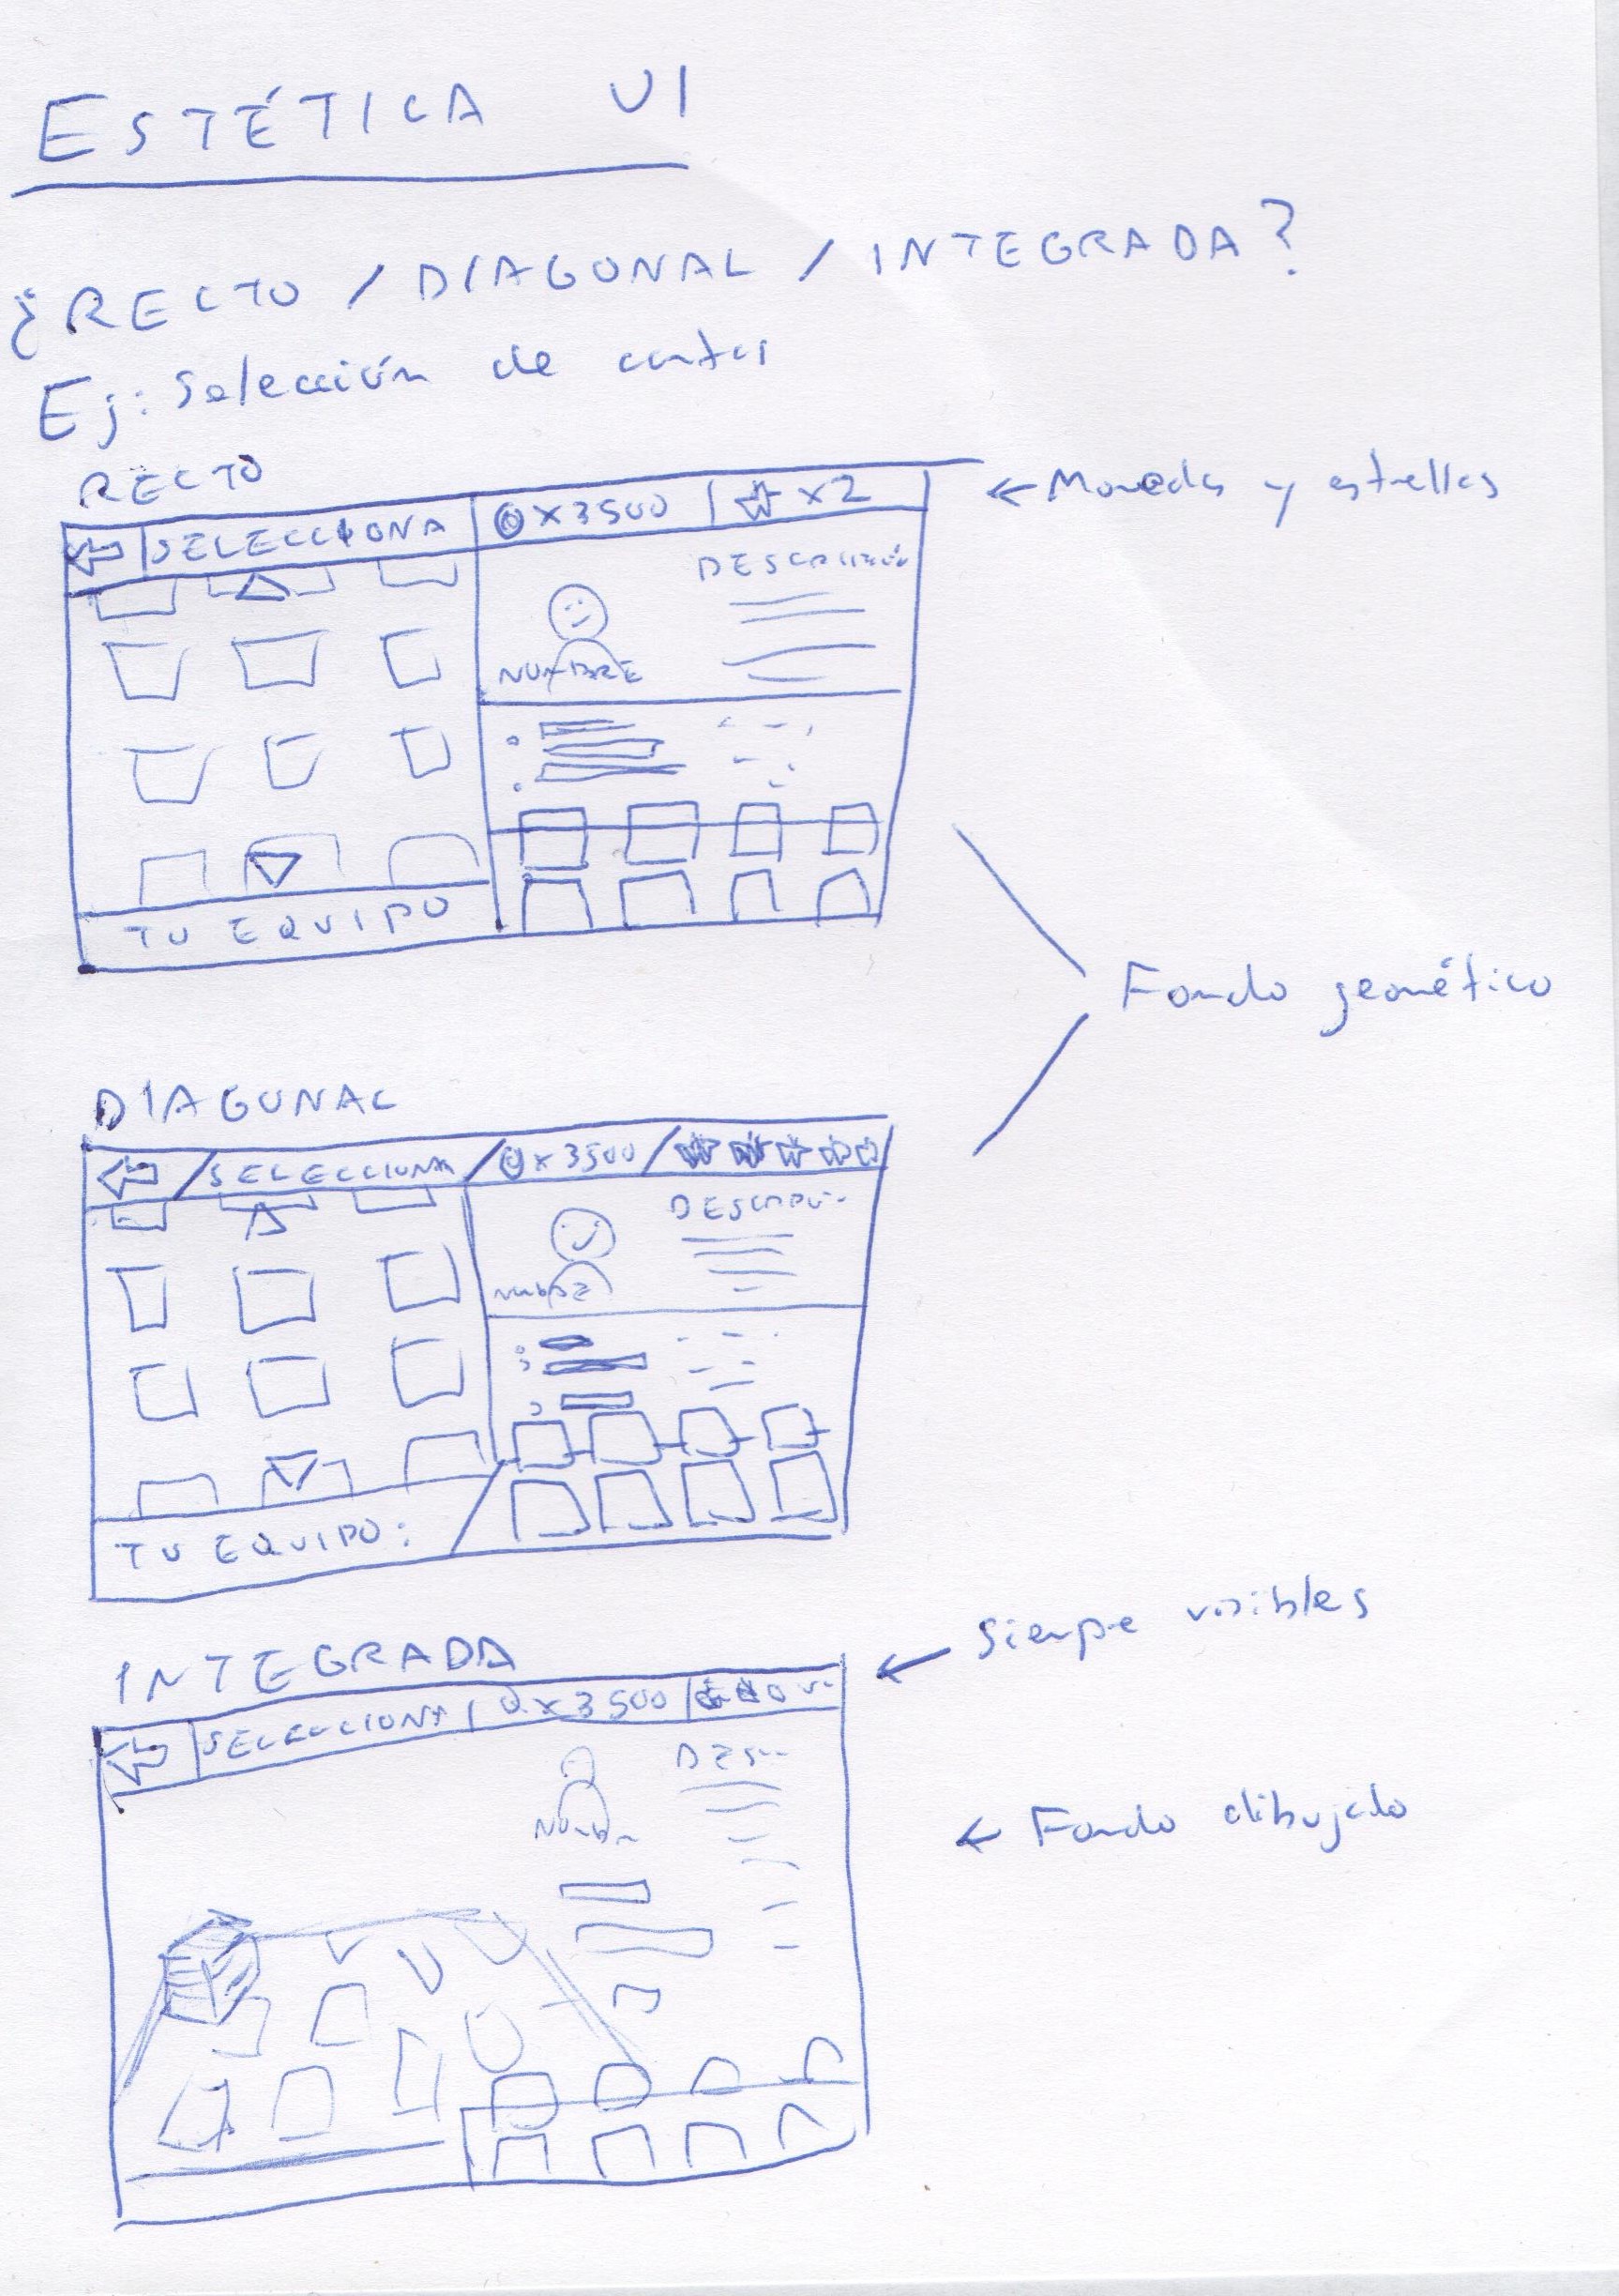 ESTÉTICA UI
¿RECTO / DIAGONAL / INTEGRADA?
Ej: Selección de cartas
RECTO
SELECCIONA x3500 | x2
← Monedas y estrellas
DESCRIPCIÓN
NOMBRE
TU EQUIPO
Fondo geomético
DIAGONAL
/ SELECCIONA / x3500 /
NOMBRE
TU EQUIPO:
← Siempre visibles
INTEGRADA
SELECCIONA | x3500 |
DES...
← Fondo dibujado